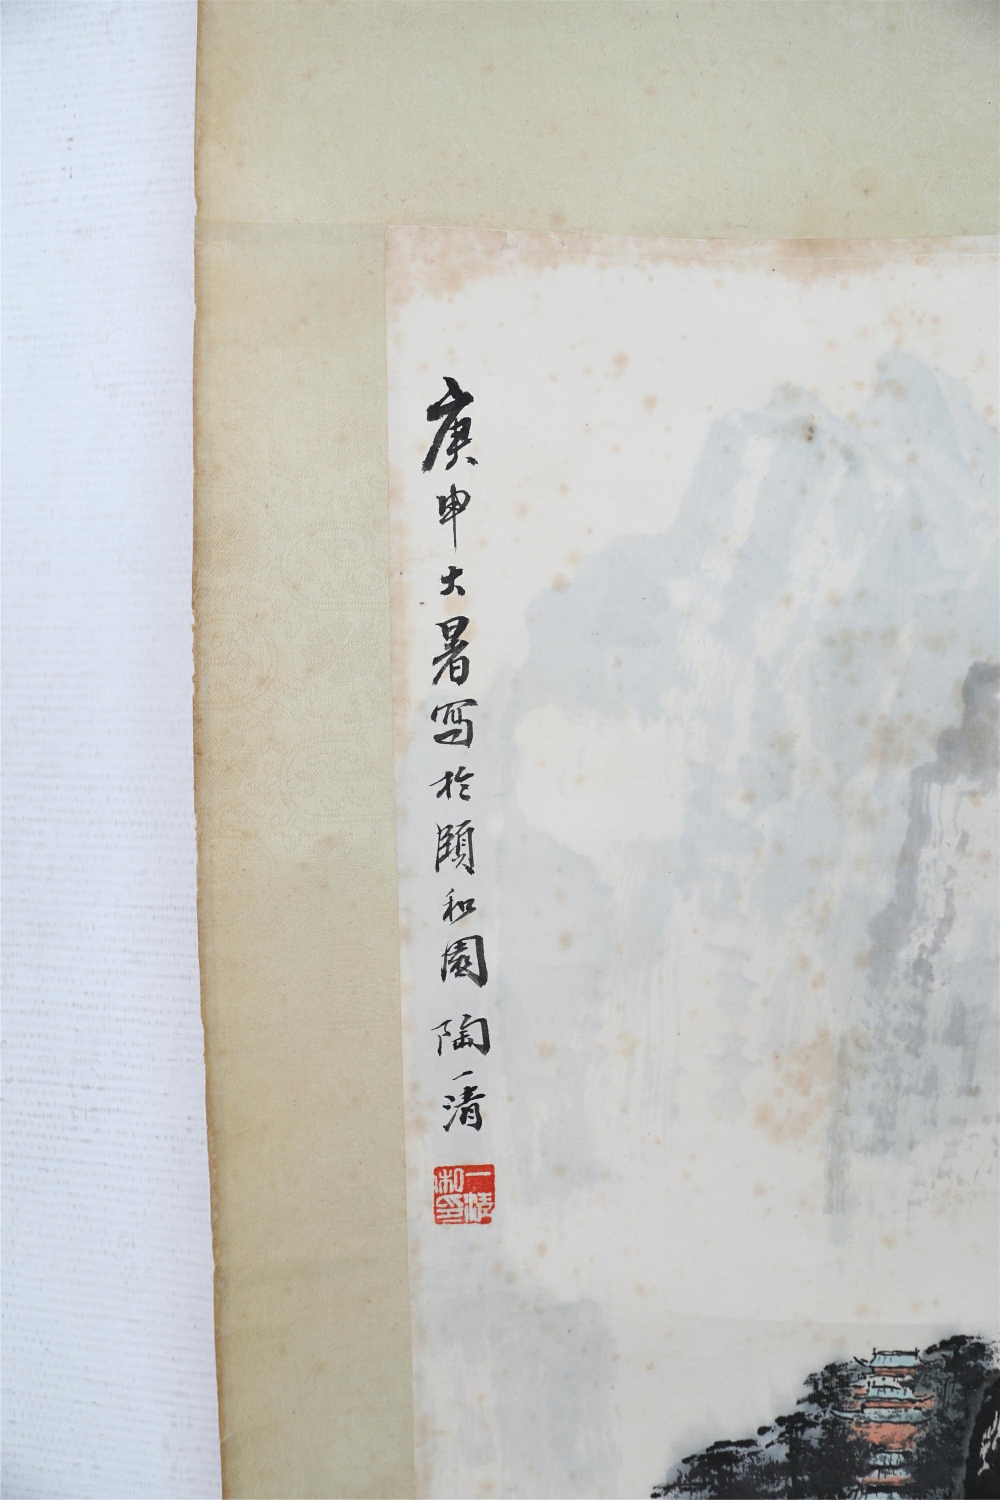 庚申大暑写於頤和園 陶一清
一清私印